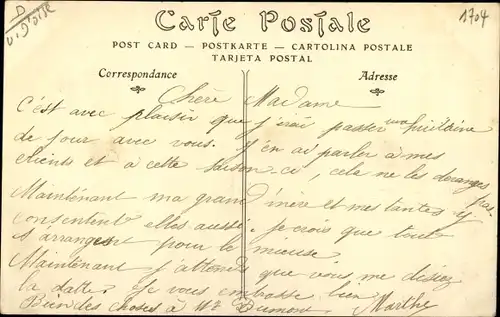 D
V. d'Oise
1704
Carte Postale
POST CARD — POSTKARTE — CARTOLINA POSTALE
TARJETA POSTAL
Correspondance
Adresse
Chère Madame
C'est avec plaisir que j'irai passer une huitaine
de jour avec vous. J'en ai parler à mes
clients et à cette saison-ci, cela ne les derange pas.
Maintenant ma grand mère et mes tantes y
consentent elles aussi. Je crois que tout
s'arrangent pour le mieuse.
Maintenant j'attends que vous me disiez
la date. Je vous embrasse bien
Bien des choses à Mr Dumont. Marthe